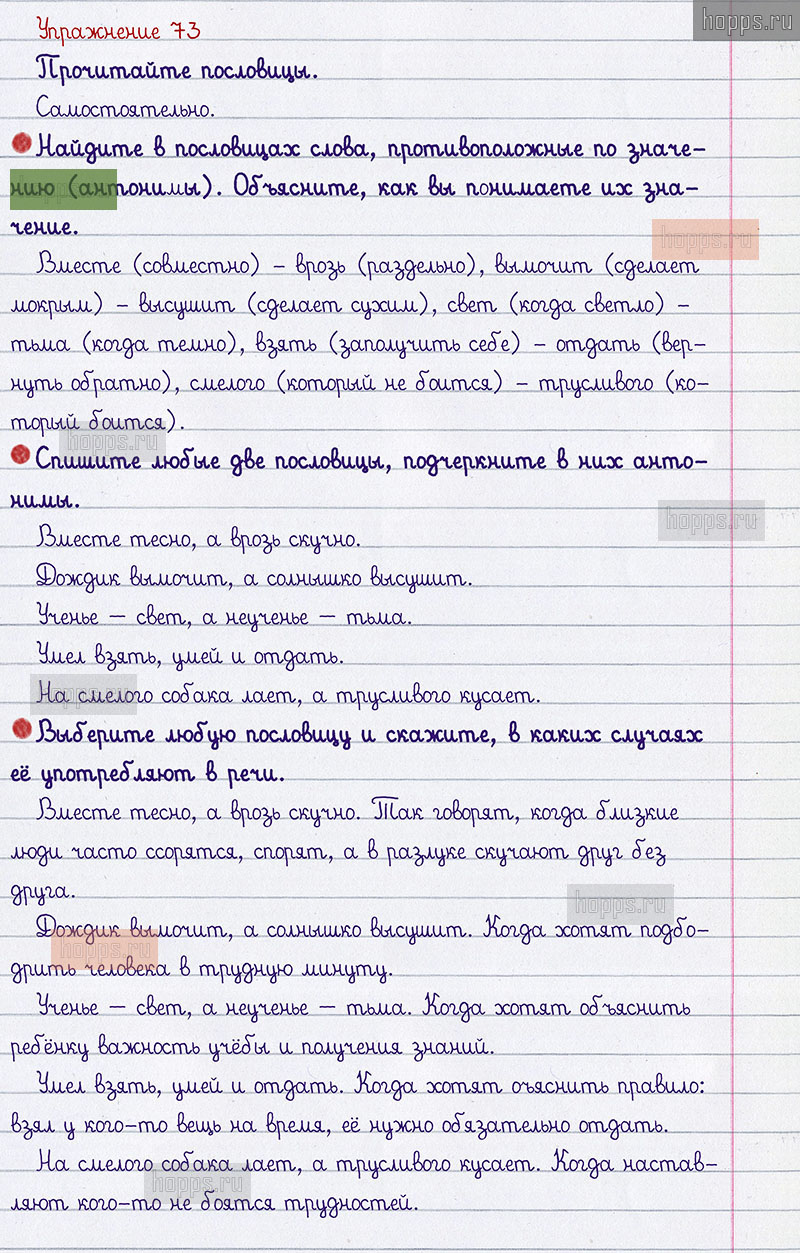 hopps.ru
Упражнение 73
Прочитайте пословицы.
Самостоятельно.
Найдите в пословицах слова, противоположные по значе-
нию (антонимы). Объясните, как вы понимаете их зна-
чение.
hopps.ru
Вместе (совместно) – врозь (раздельно), вымочит (сделает
мокрым) – высушит (сделает сухим), свет (когда светло) –
тьма (когда темно), взять (заполучить себе) – отдать (вер-
нуть обратно), смелого (который не боится) – трусливого (ко-
торый боится).
hopps.ru
Спишите любые две пословицы, подчеркните в них анто-
нимы.
hopps.ru
Вместе тесно, а врозь скучно.
Дождик вымочит, а солнышко высушит.
Ученье – свет, а неученье – тьма.
Умел взять, умей и отдать.
На смелого собака лает, а трусливого кусает.
Выберите любую пословицу и скажите, в каких случаях
её употребляют в речи.
Вместе тесно, а врозь скучно. Так говорят, когда близкие
люди часто ссорятся, спорят, а в разлуке скучают друг без
друга.
hopps.ru
Дождик вымочит, а солнышко высушит. Когда хотят подбо-
hopps.ru
дрить человека в трудную минуту.
Ученье – свет, а неученье – тьма. Когда хотят объяснить
ребёнку важность учёбы и получения знаний.
Умел взять, умей и отдать. Когда хотят оъяснить правило:
взял у кого-то вещь на время, её нужно обязательно отдать.
На смелого собака лает, а трусливого кусает. Когда настав-
hopps.ru
ляют кого-то не боятся трудностей.